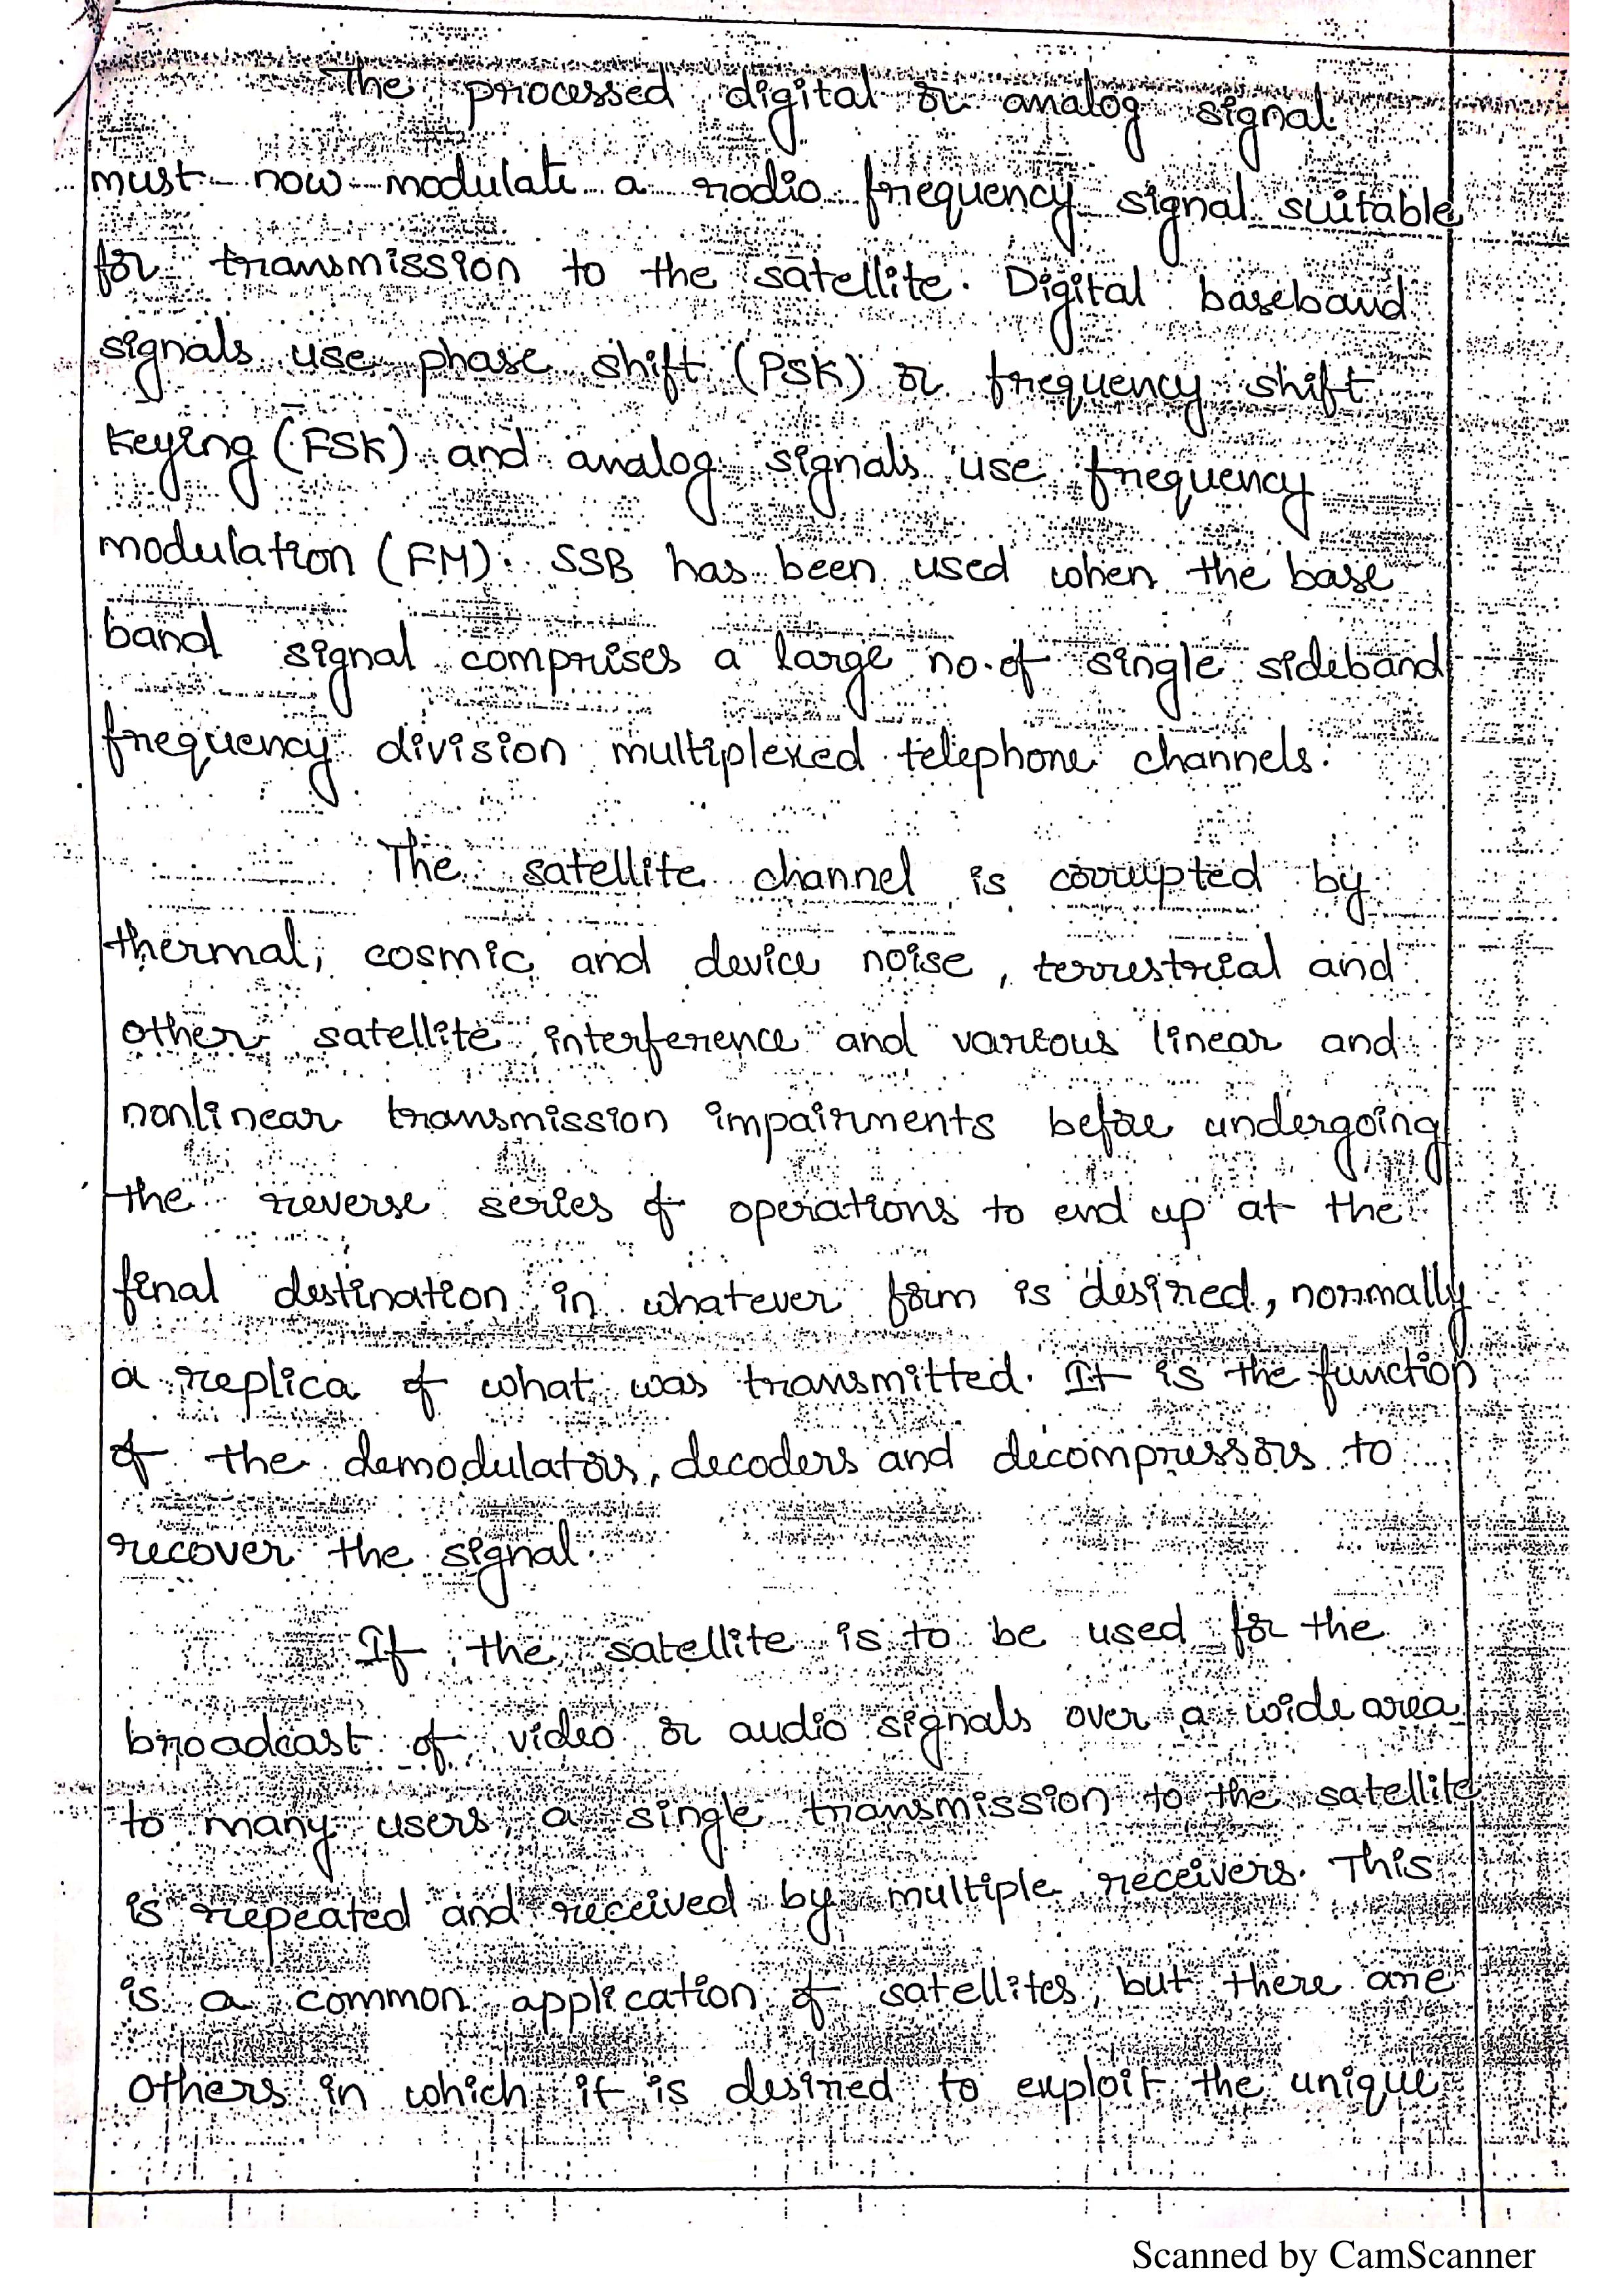 The processed digital or analog signal
must now modulate a radio frequency signal suitable
for transmission to the satellite. Digital baseband
signals use phase shift (PSK) or frequency shift
Keying (FSK) and analog signals use frequency
modulation (FM). SSB has been used when the base
band signal comprises a large no. of single sideband
frequency division multiplexed telephone channels.
The satellite channel is corrupted by
thermal, cosmic and device noise, terrestrial and
other satellite interference and various linear and
nonlinear transmission impairments before undergoing
the reverse series of operations to end up at the
final destination in whatever form is desired, normally
a replica of what was transmitted. It is the function
of the demodulators, decoders and decompressors to
recover the signal.
If the satellite is to be used for the
broadcast of video or audio signals over a wide area
to many users, a single transmission to the satellite
is repeated and received by multiple receivers. This
is a common application of satellites, but there are
others in which it is desired to exploit the unique
Scanned by CamScanner